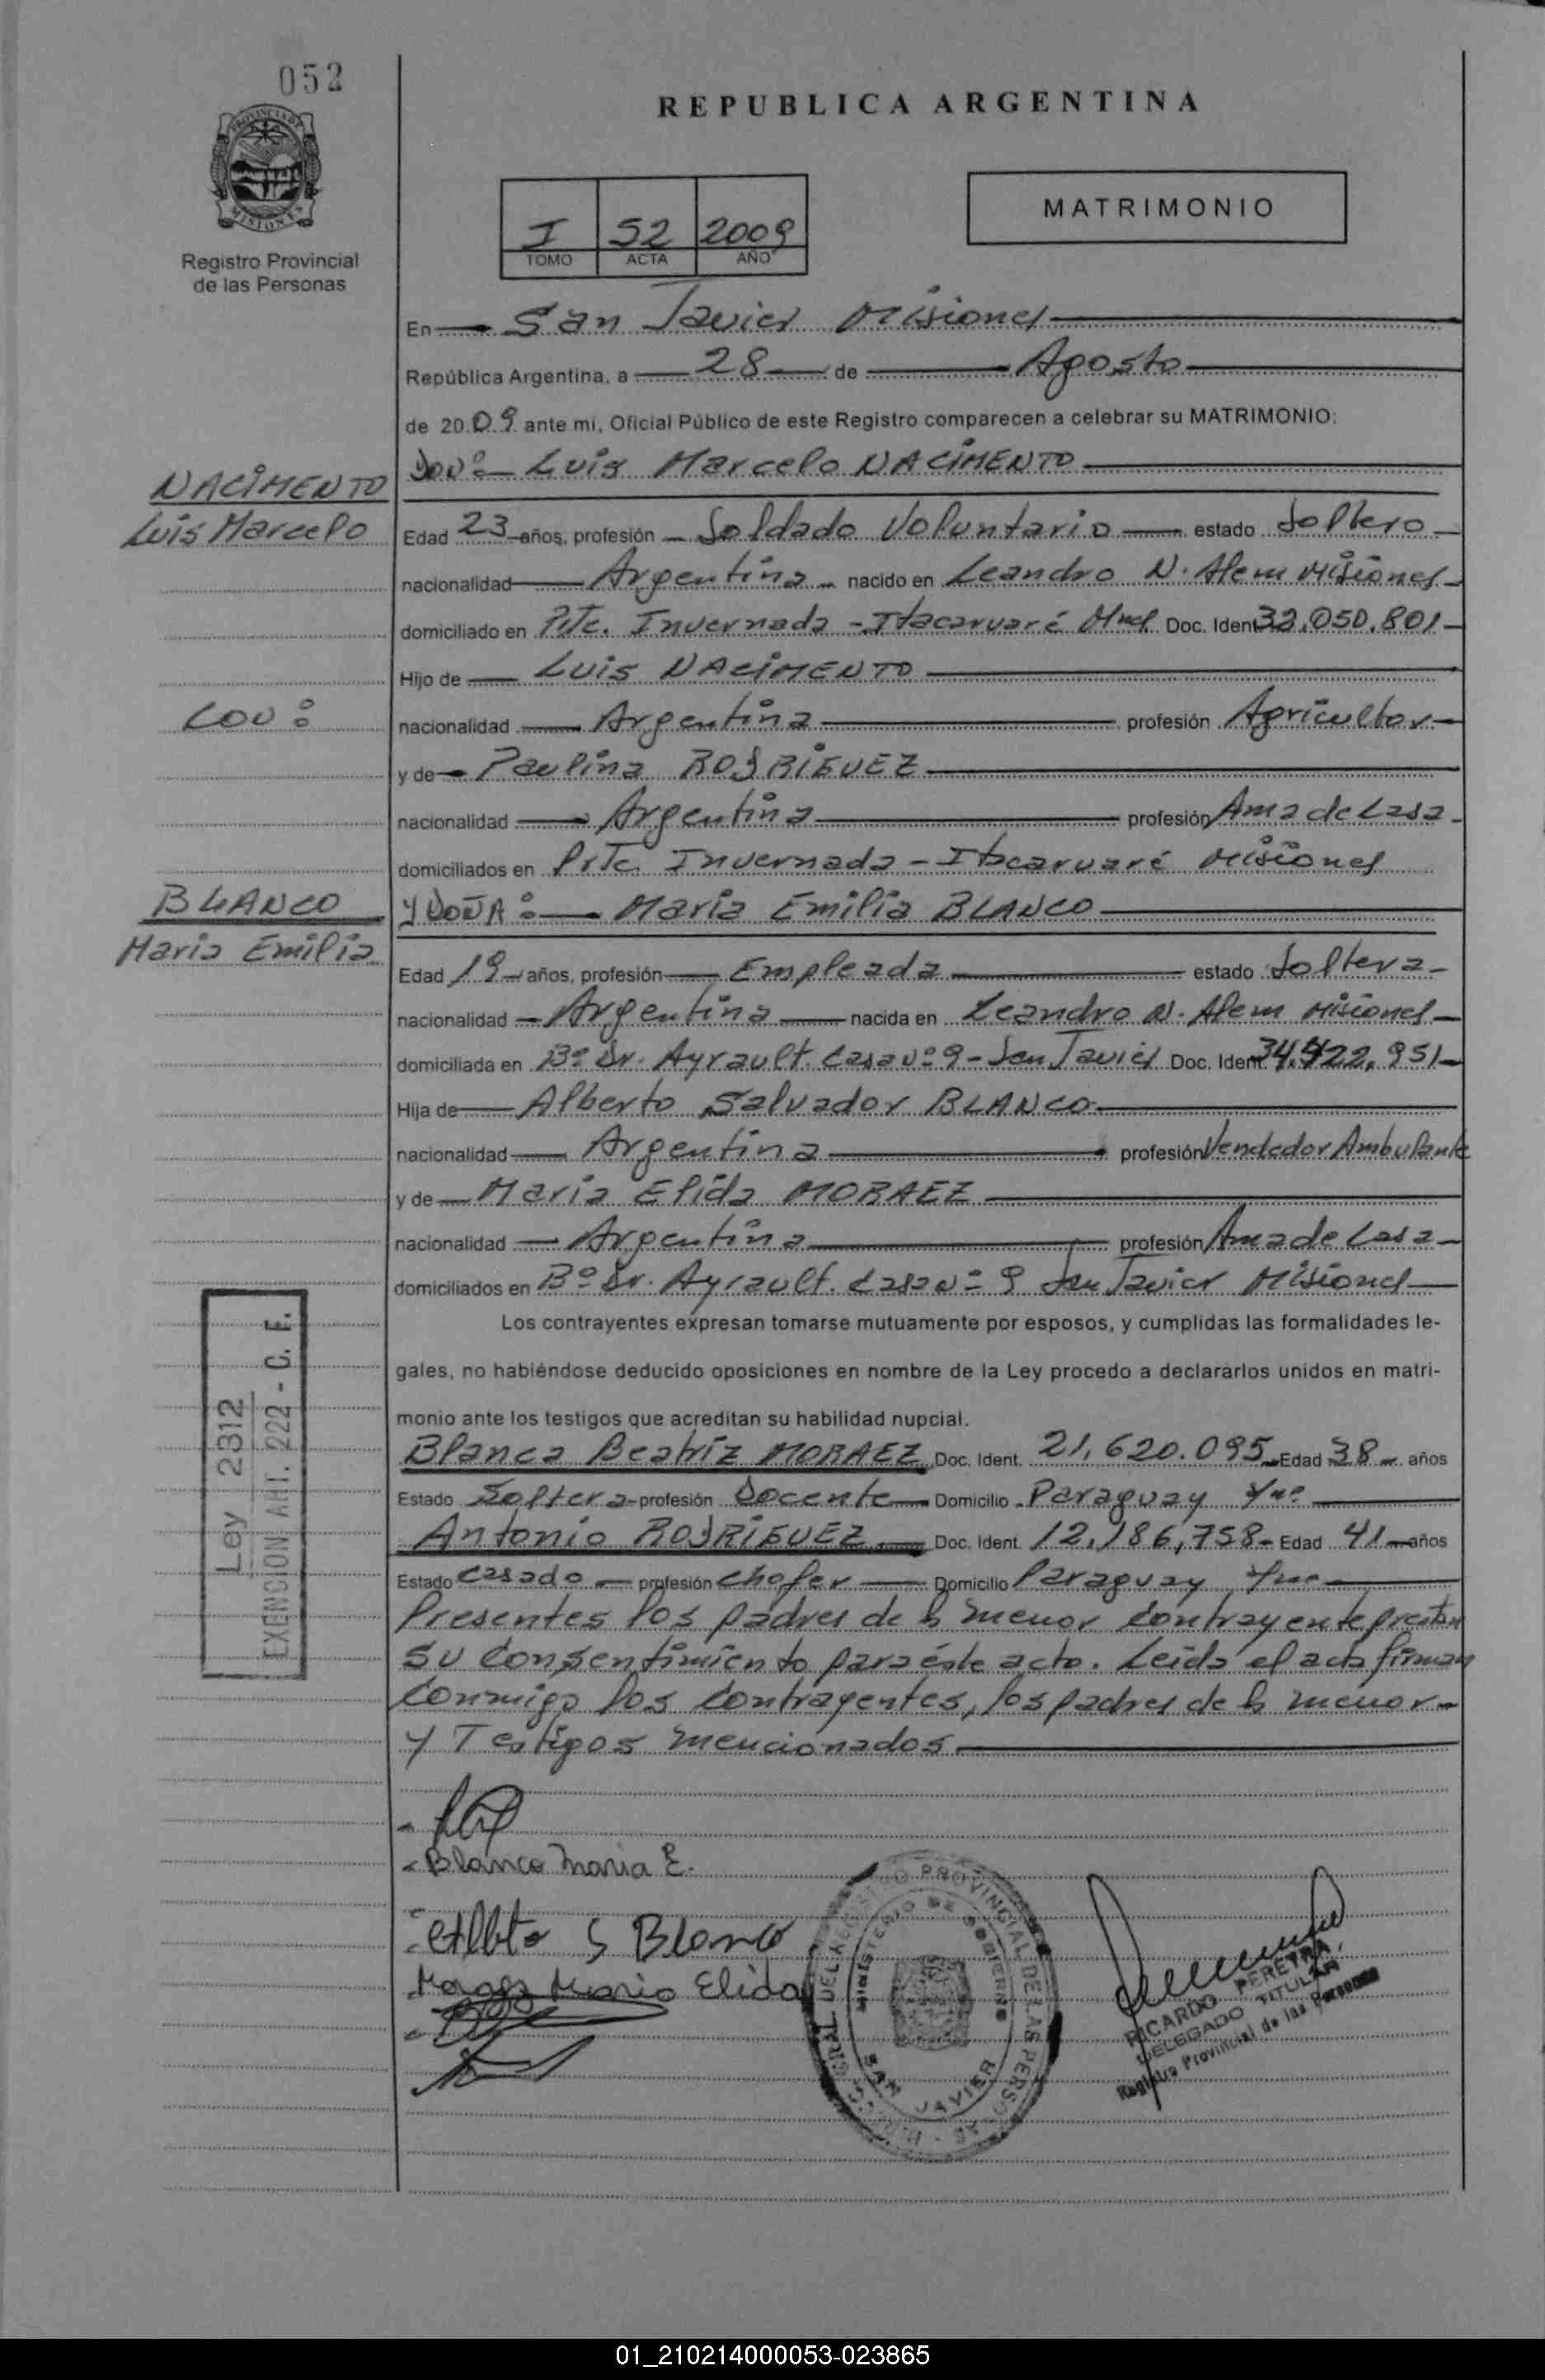 052
REPUBLICA ARGENTINA
PROVINCIA DE
MISIONES
Registro Provincial
de las Personas
I 52 2009
TOMO ACTA AÑO
MATRIMONIO
En San Javier Misiones
República Argentina, a 28 de Agosto
de 2009 ante mí, Oficial Público de este Registro comparecen a celebrar su MATRIMONIO:
DON: Luis Marcelo NACIMENTO
NACIMENTO
Luis Marcelo
Edad 23 años, profesión Soldado Voluntario estado Soltero
nacionalidad Argentina nacido en Leandro N. Alem Misiones
domiciliado en Pje. Invernada - Itacaruaré Mnes Doc. Ident 32.050.801
Hijo de Luis NACIMENTO
CON:
nacionalidad Argentina profesión Agricultor
y de Paulina RODRIGUEZ
nacionalidad Argentina profesión Ama de Casa
domiciliados en Pje. Invernada - Itacaruaré Misiones
BLANCO
Y DOÑA: Maria Emilia BLANCO
Maria Emilia
Edad 19 años, profesión Empleada estado Soltera
nacionalidad Argentina nacida en Leandro N. Alem Misiones
domiciliada en Bº Dr. Ayrault. Casa Nº 9 - San Javier Doc. Ident. 34.922.951
Hija de Alberto Salvador BLANCO
nacionalidad Argentina profesión Vendedor Ambulante
y de Maria Elida MORAEZ
nacionalidad Argentina profesión Ama de Casa
domiciliados en Bº Dr. Ayrault. Casa Nº 9 San Javier Misiones
Los contrayentes expresan tomarse mutuamente por esposos, y cumplidas las formalidades le-
gales, no habiéndose deducido oposiciones en nombre de la Ley procedo a declararlos unidos en matri-
monio ante los testigos que acreditan su habilidad nupcial.
Blanca Beatriz MORAEZ Doc. Ident. 21.620.095 Edad 38 años
Estado Soltera profesión Docente Domicilio Paraguay
Antonio RODRIGUEZ Doc. Ident. 12.186.758 Edad 41 años
Estado Casado profesión Chofer Domicilio Paraguay
Ley 2312
EXENCION ART. 222 - C. F.
Presentes los padres de la menor contrayente prestan
su consentimiento para éste acto. Leída el acta firman
conmigo los contrayentes, los padres de la menor
y Testigos mencionados
Blanco Maria E.
Albto S Blanco
Maria Elida
REGISTRO PROVINCIAL DE LAS PERSONAS
MINISTERIO DE GOBIERNO
SAN JAVIER
RICARDO PEREYRA
DELEGADO TITULAR
Registro Provincial de las Personas
01_210214000053-023865